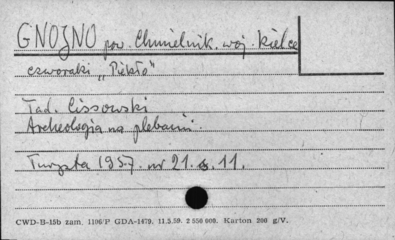 GNOJNO pow. Chmielnik. woj. Kielce
czworaki „Piekło"
Tad. Lissowski
Archeologia na plebanii.
Turysta 1957. nr 21. s. 11.
CWD-B-15b zam. 1106/P GDA-1479. 11.5.59. 2 550 000. Karton 200 g/V.